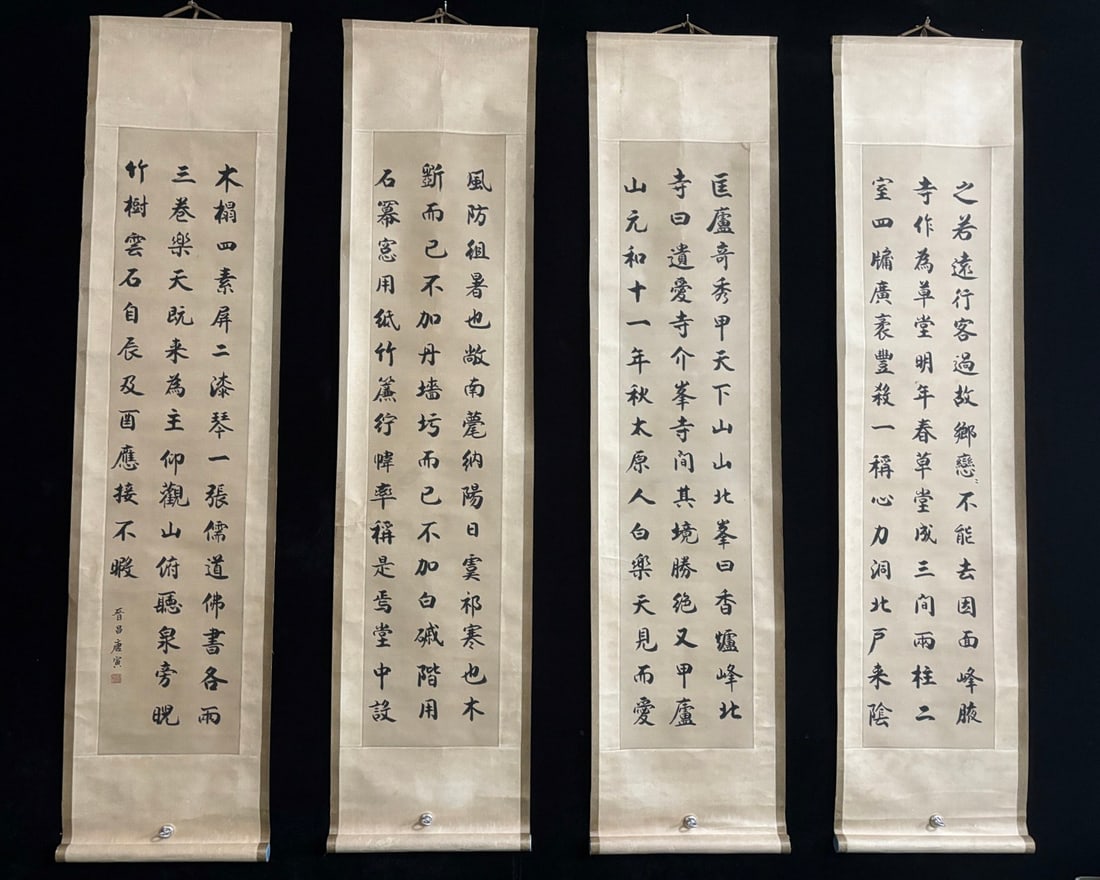 之若遠行客過故鄉戀〻不能去因面峰腋
寺作為草堂明年春草堂成三間兩柱二
室四牖廣袤豐殺一稱心力洞北戶来陰
匡廬奇秀甲天下山山北峯曰香爐峰北
寺曰遺愛寺介峯寺間其境勝絶又甲廬
山元和十一年秋太原人白樂天見而愛
風防徂暑也敞南甍納陽日虞祁寒也木
斵而已不加丹墻圬而已不加白磩階用
石冪窓用紙竹簾紵幃率稱是焉堂中設
木榻四素屏二漆琴一張儒道佛書各兩
三卷樂天既来為主仰觀山俯聽泉旁睨
竹樹雲石自辰及酉應接不暇
晉昌唐寅